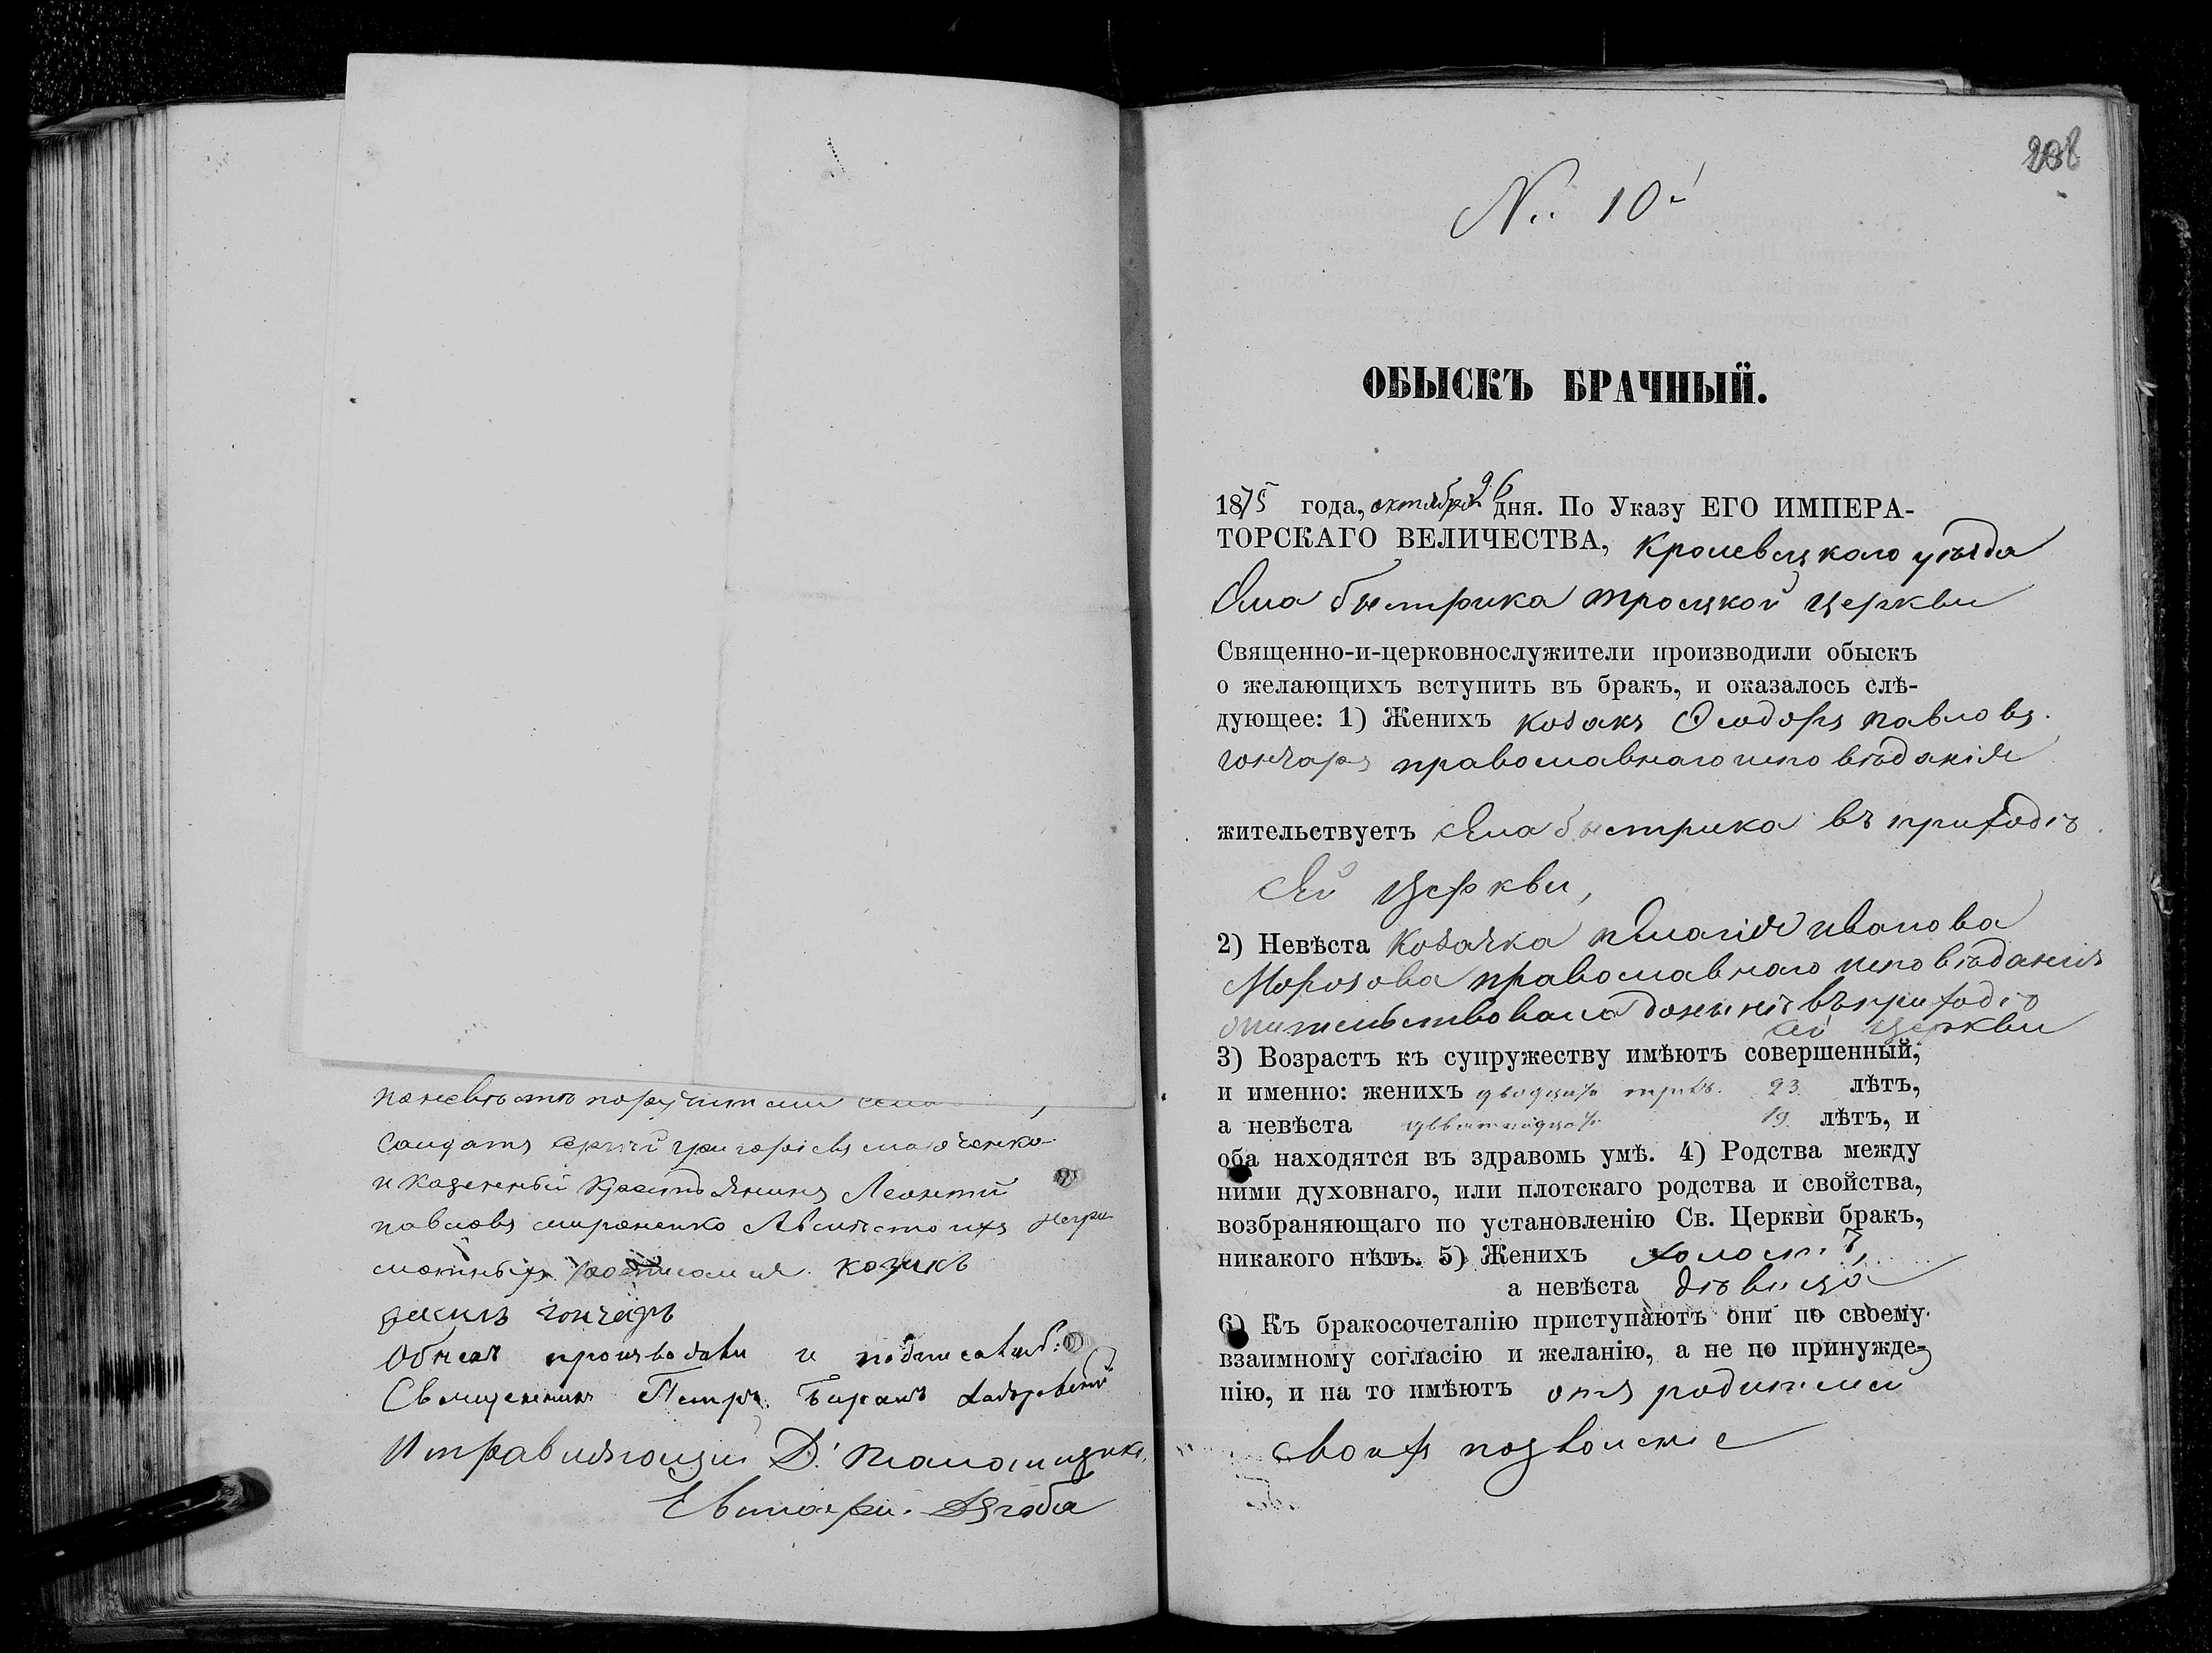 по невѣстѣ поручители
Солдатъ григорьевъ
и казенный крестьянинъ Леонтій
павловъ мироненко Авмѣсто ихъ негра
мотныхъ козакъ
гончаръ
Обыскъ производили и подписались:
Священникъ Петръ
Исправляющій Д. Псаломщика
208
N.. 10й
ОБЫСКЪ БРАЧНЫЙ.
1875 года, октября 26 дня. По Указу ЕГО ИМПЕРА-
ТОРСКАГО ВЕЛИЧЕСТВА, Кролевецкаго уѣзда
Села быстрика троицкой церкви
Священно-и-церковнослужители производили обыскъ
о желающихъ вступить въ бракъ, и оказалось слѣ-
дующее: 1) Женихъ козакъ Ѳеодоръ павловъ
гончаръ православнаго исповѣданія
жительствуетъ Села быстрика въ приходѣ
Сей церкви,
2) Невѣста Козачка пелагія иванова
Морозова православнаго исповѣданія
жительствовала донынѣ въ приходѣ
сей церкви
3) Возрастъ къ супружеству имѣютъ совершенный,
и именно: женихъ двадцать трехъ 23 лѣтъ,
а невѣста девятнадцать 19 лѣтъ, и
оба находятся въ здравомъ умѣ. 4) Родства между
ними духовнаго, или плотскаго родства и свойства,
возбраняющаго по установленію Св. Церкви бракъ,
никакого нѣтъ. 5) Женихъ холостъ,
а невѣста дѣвица
6) Къ бракосочетанію приступаютъ они по своему
взаимному согласію и желанію, а не по принужде-
нію, и на то имѣютъ отъ родителей
своихъ позволеніе